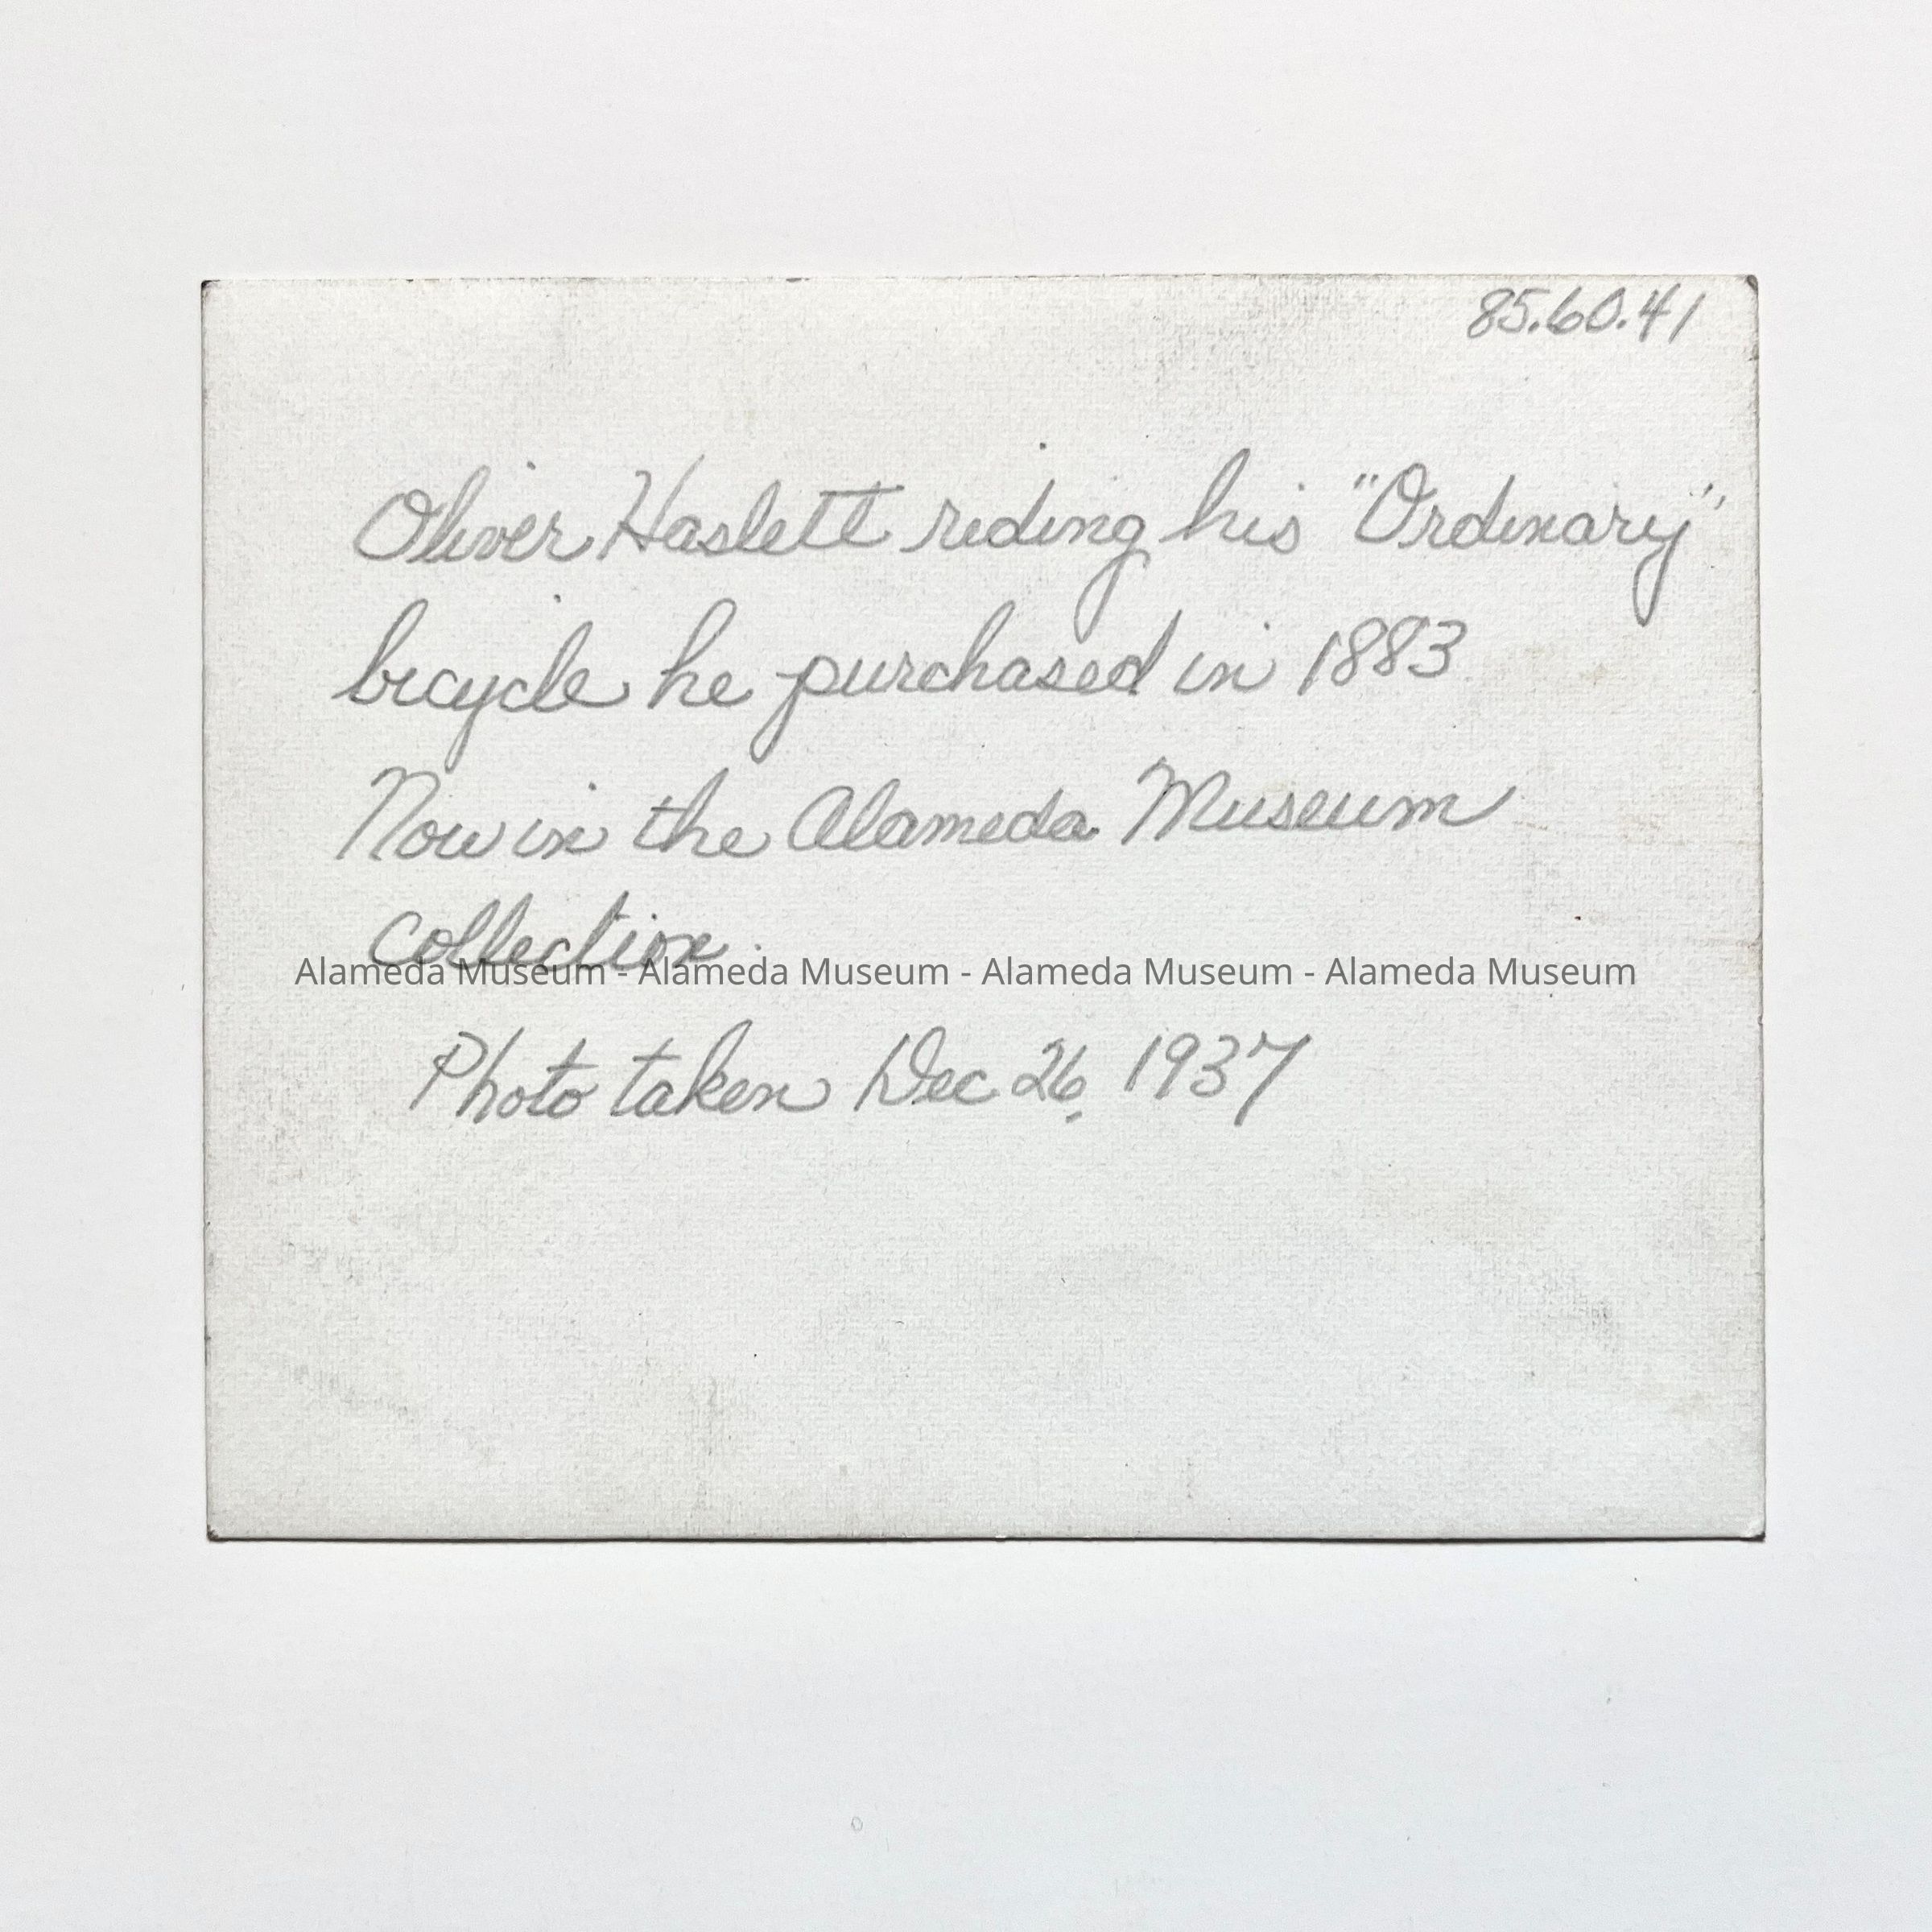 85.60.41
Oliver Haslett riding his "Ordinary"
bicycle he purchased in 1883
Now in the Alameda Museum
Collection.
Alameda Museum - Alameda Museum - Alameda Museum - Alameda Museum
Photo taken Dec 26, 1937